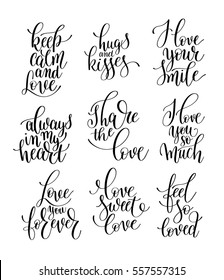 keep
calm
and
Love
hugs
and
kisses
I love
your
Smile
always
in my
heart
Share
the
love
I love
you
so
much
Love
you
forever
love
sweet
love
feel
so
loved
557557315